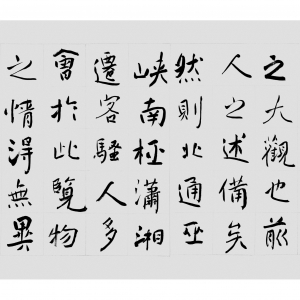 之大觀也前
人之述備矣
然則北通巫
峽南極瀟湘
遷客騷人多
會於此覽物
之情得無異